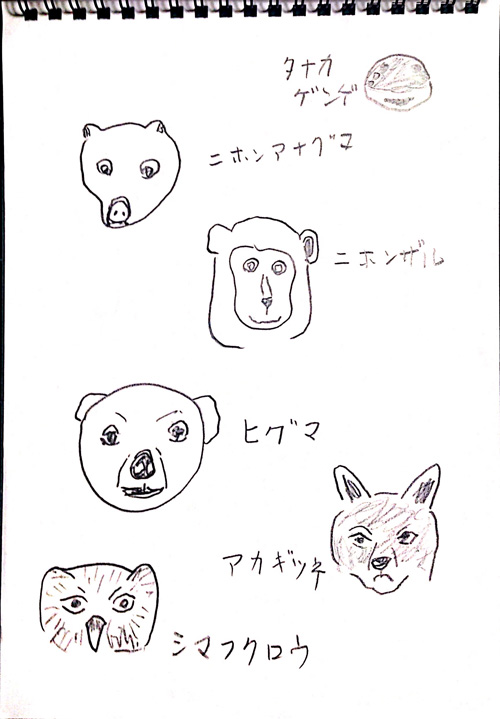 タナカ
ゲンゲ
ニホンアナグマ
ニホンザル
ヒグマ
アカギツネ
シマフクロウ